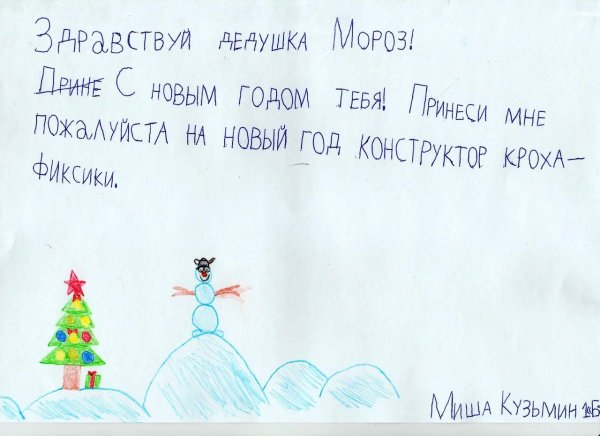 Здравствуй дедушка Мороз!
Прине С новым годом тебя! Принеси мне
пожалуйста на новый год конструктор кроха–
фиксики.
Миша Кузьмин